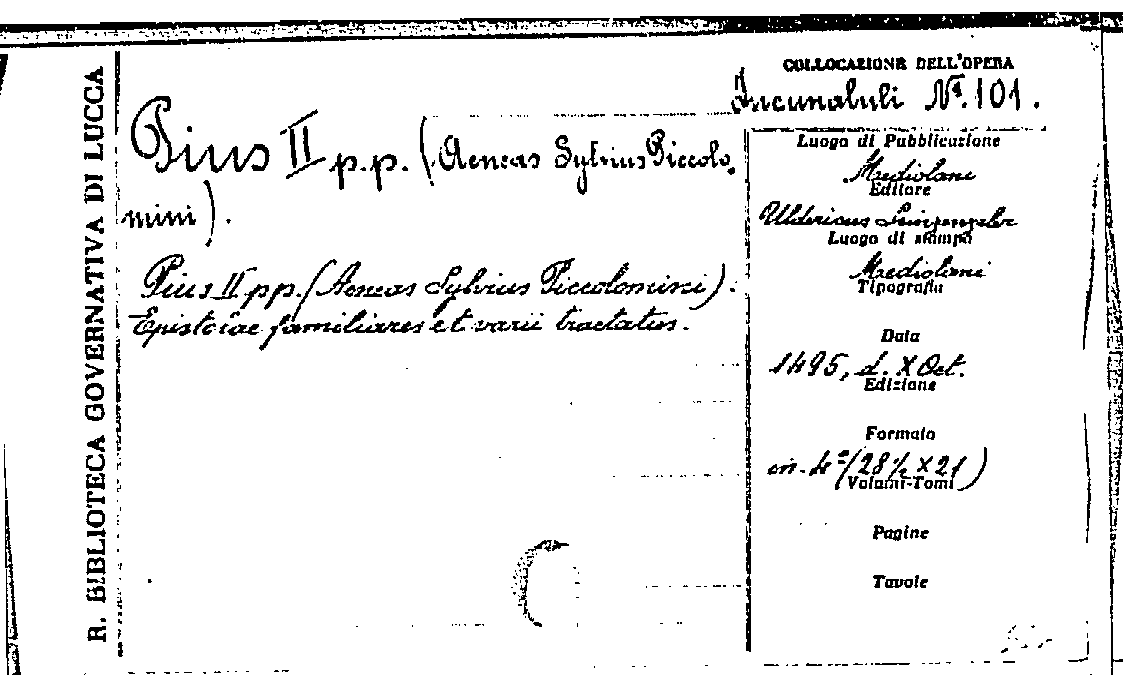 R. BIBLIOTECA GOVERNATIVA DI LUCCA
COLLOCAZIONE DELL'OPERA
Incunabuli Nº. 101.
Pius II p.p. (Aeneas Sylvius Piccolo
mini).
Pius II pp. (Aeneas Sylvius Piccolomini).
Epistolae familiares et varii tractatus.
Luogo di Pubblicazione
Mediolani
Editore
Uldericus
Luogo di stampa
Mediolani
Tipografia
Data
1495, d. X Oct.
Edizione
Formato
in-4º (28½ x 21)
Volumi-Tomi
Pagine
Tavole